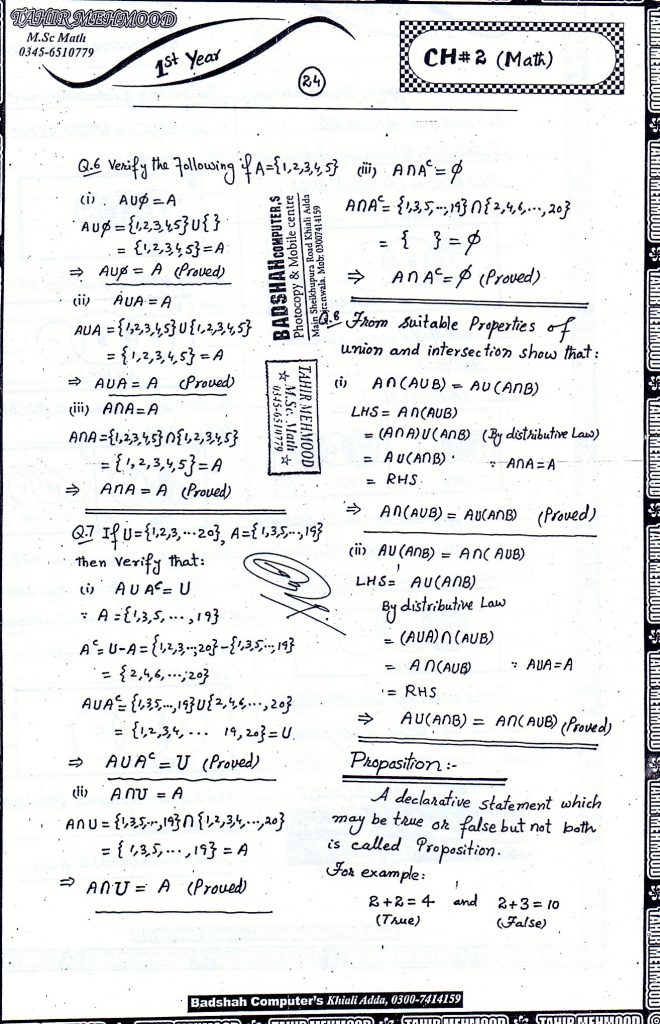 TAHIR MEHMOOD
M.Sc Math
0345-6510779
1st Year
24
CH#2 (Math)
Q.6 Verify the Following if A={1,2,3,4,5}
(i) A∪ϕ=A
A∪ϕ={1,2,3,4,5}∪{ }
= {1,2,3,4,5}=A
⇒ A∪ϕ = A (Proved)
(ii) A∪A=A
A∪A={1,2,3,4,5}∪{1,2,3,4,5}
= {1,2,3,4,5}=A
⇒ A∪A= A (Proved)
(iii) A∩A=A
A∩A={1,2,3,4,5}∩{1,2,3,4,5}
= {1,2,3,4,5}=A
⇒ A∩A = A (Proved)
Q.7 If U={1,2,3,...20}, A={1,3,5,..,19}
then verify that:
(i) A∪Aᶜ=U
∵ A={1,3,5,...,19}
Aᶜ=U-A={1,2,3,...,20}-{1,3,5,...,19}
= {2,4,6,...,20}
A∪Aᶜ={1,3,5,..,19}∪{2,4,6,...,20}
= {1,2,3,4,... 19,20}=U
⇒ A∪Aᶜ=U (Proved)
(ii) A∩U=A
A∩U={1,3,5,..,19}∩{1,2,3,4,...,20}
= {1,3,5,...,19}=A
⇒ A∩U= A (Proved)
BADSHAH COMPUTER,S
Photocopy & Mobile centre
Main Sheikhupura Road Khiali Adda
Mob: 03007414159
TAHIR MEHMOOD
☆ M.Sc Math ☆
0345-6510779
(iii) A∩Aᶜ=ϕ
A∩Aᶜ={1,3,5,...,19}∩{2,4,6,...,20}
= { }=ϕ
⇒ A∩Aᶜ=ϕ (Proved)
Q.8 From Suitable Properties of
union and intersection show that:
(i) A∩(A∪B) = A∪(A∩B)
LHS = A∩(A∪B)
= (A∩A)∪(A∩B) (By distributive Law)
= A∪(A∩B) ∵ A∩A=A
= RHS
⇒ A∩(A∪B) = A∪(A∩B) (Proved)
(ii) A∪(A∩B) = A∩(A∪B)
LHS= A∪(A∩B)
By distributive Law
= (A∪A)∩(A∪B)
= A∩(A∪B) ∵ A∪A=A
= RHS
⇒ A∪(A∩B) = A∩(A∪B) (Proved)
Proposition:-
A declarative statement which
may be true or false but not both
is called Proposition.
For example:
2+2=4 and 2+3=10
(True) (False)
Badshah Computer's Khiali Adda, 0300-7414159
TAHIR MEHMOOD